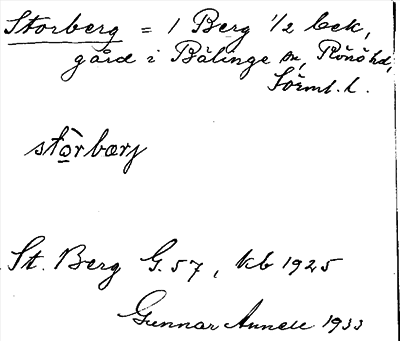 Storberg = 1 Berg 1/2 bek,
gård i Bälinge sn, Rönö hd,
Sörml. l.
stòrbærj
St. Berg G. 57, kb 1925
Gunnar Annell 1933